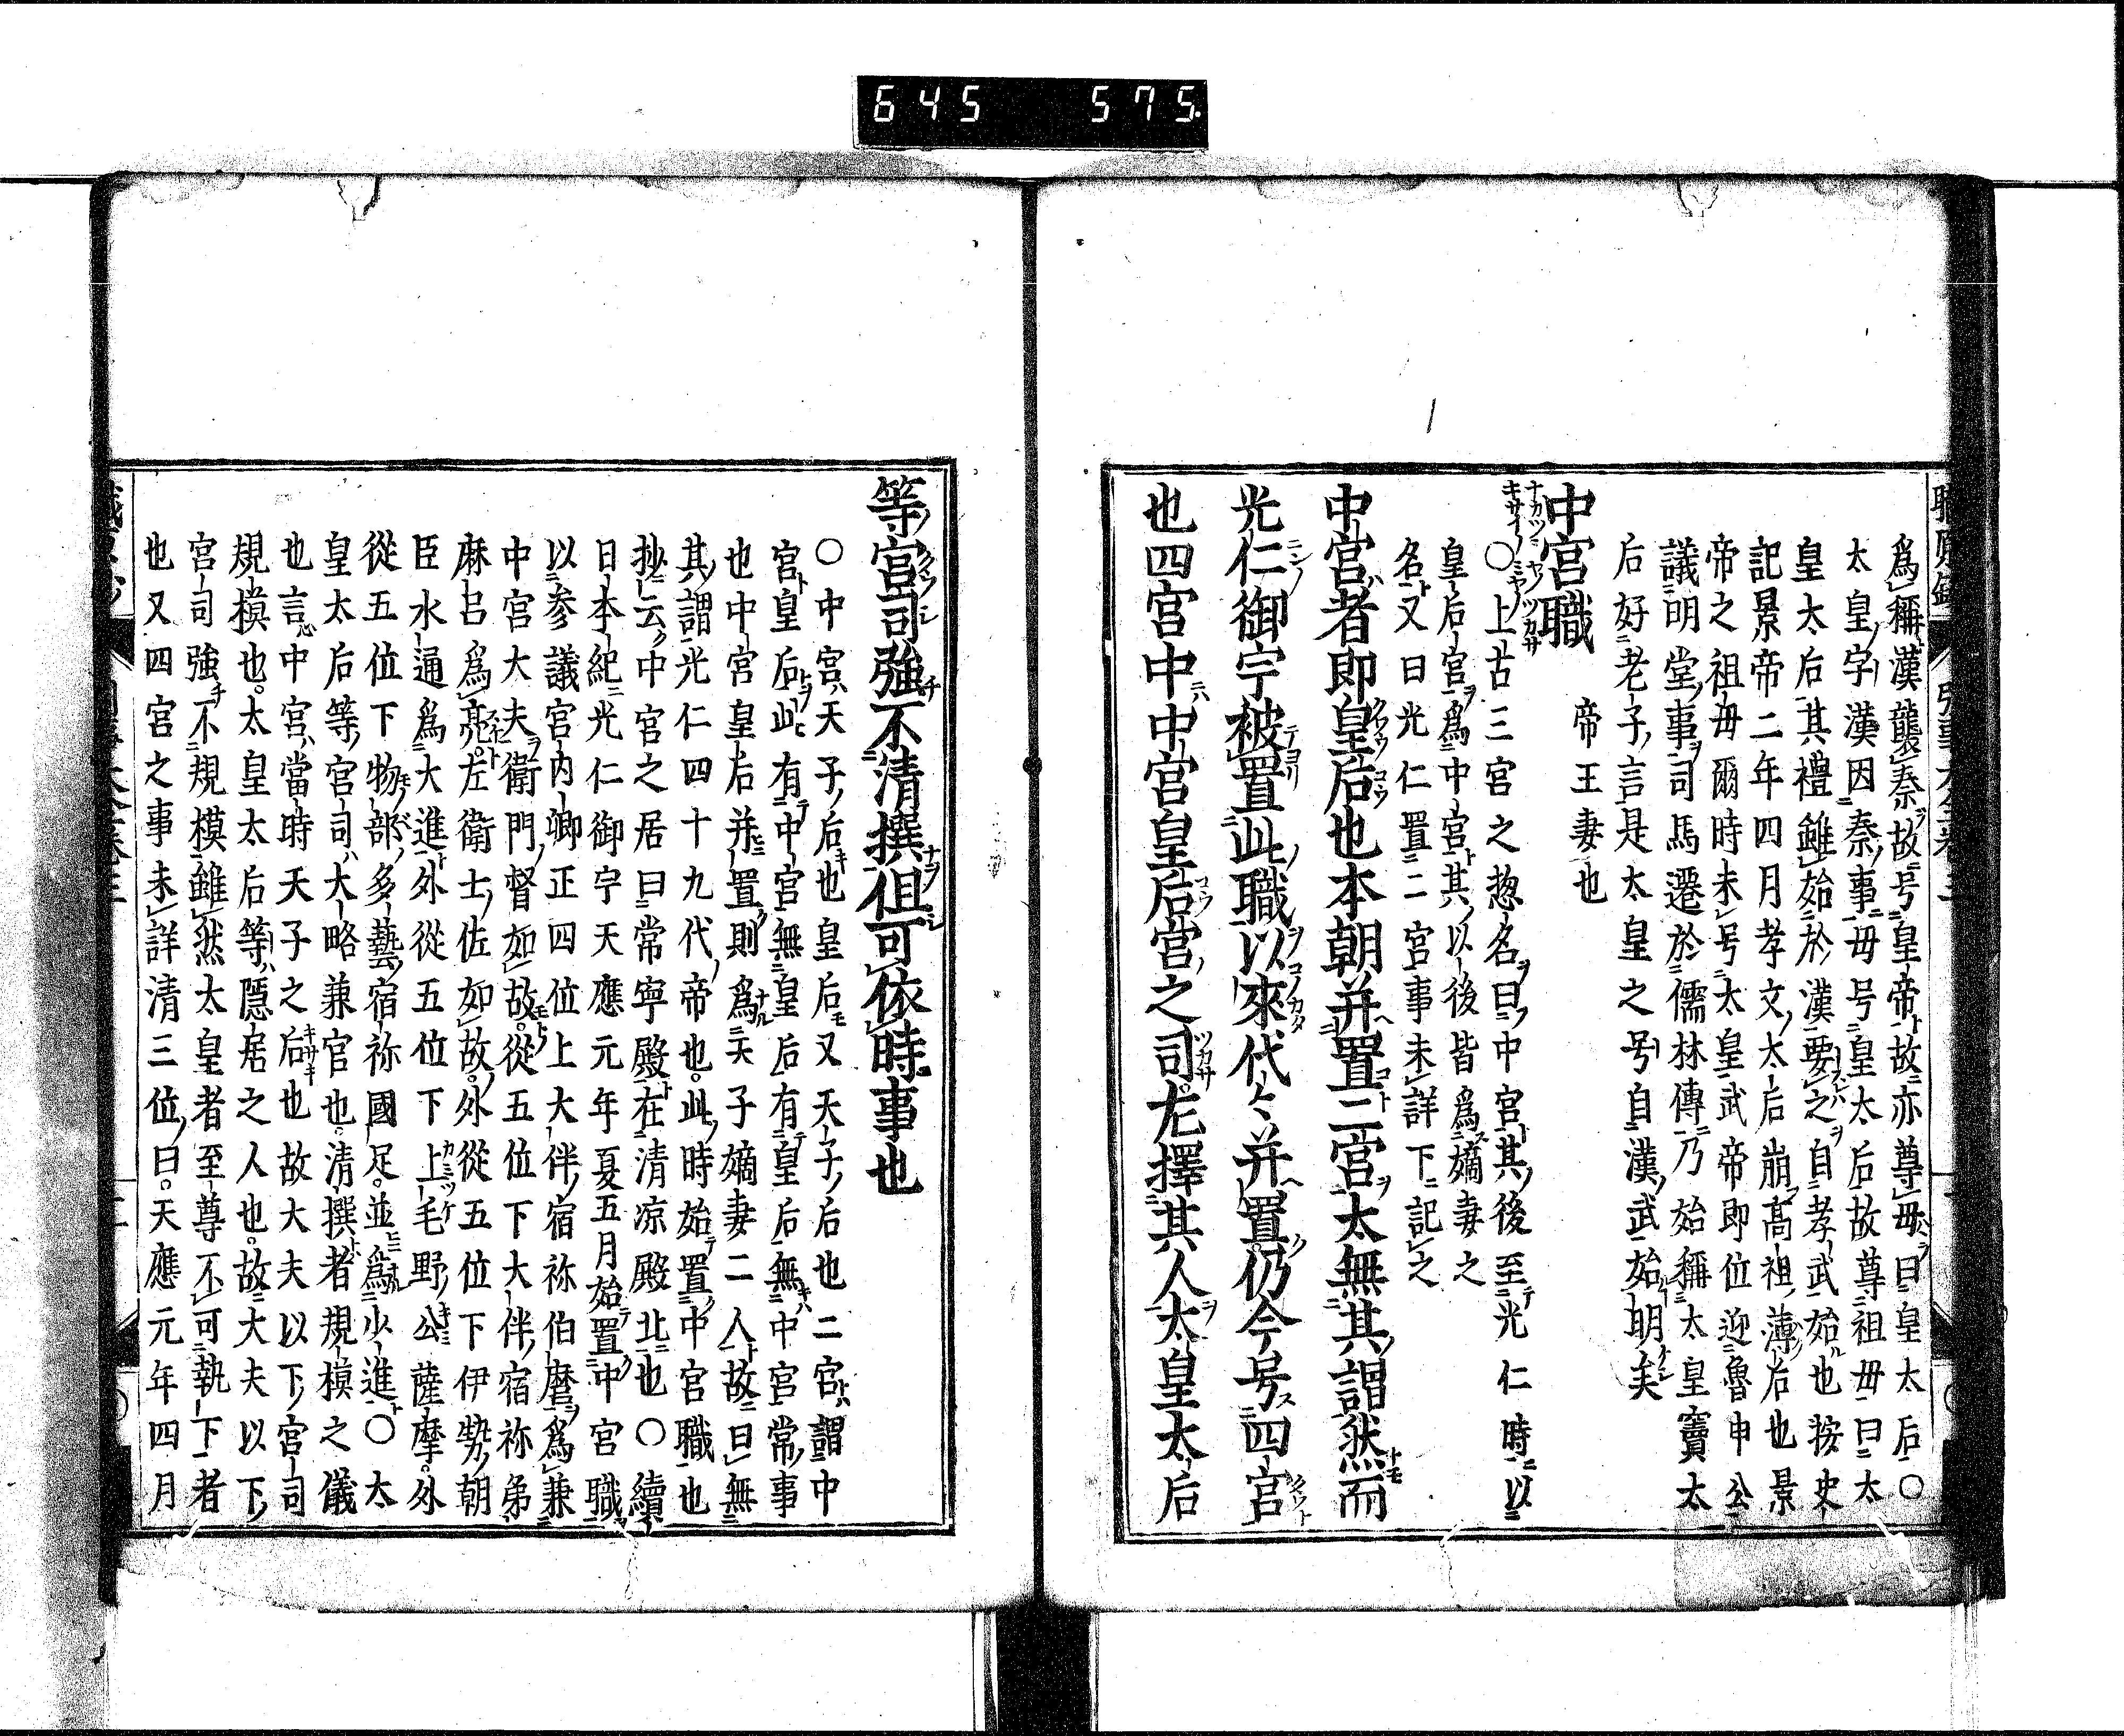 645 575.
爲稱漢襲秦故号皇帝故亦尊母曰皇太后〇
太皇字漢因秦事母号皇太后故尊祖母曰太
皇太后其禮雖始於漢要之自孝武始也按史
記景帝二年四月孝文太后崩高祖薄后也景
帝之祖母爾時未号太皇武帝即位迎魯申公
議明堂事司馬遷於儒林傳乃始稱太皇竇太
后好老子言是太皇之号自漢武始明矣
中宮職 帝王妻也
〇上古三宮之惣名曰中宮其後至光仁時以
皇后宮爲中宮其以後皆爲嫡妻之
名又曰光仁置二宮事未詳下記之
中宮者即皇后也本朝并置二宮太無其謂然而
光仁御宇被置此職以來代々并置仍今号四宮
也四宮中中宮皇后宮之司尤擇其人太皇太后
等宮司強不清撰但可依時事也
〇中宮天子后也皇后又天子后也二宮謂中
宮皇后此有中宮無皇后有皇后無中宮常事
也中宮皇后并置則爲天子嫡妻二人故曰無
其謂光仁四十九代帝也此時始置中宮職也
抄云中宮之居曰常寧殿在清凉殿北也〇續
日本紀光仁御宇天應元年夏五月始置中宮職
以参議宮内卿正四位上大伴宿祢伯麿爲兼
中宮大夫衛門督如故從五位下大伴宿祢弟
麻呂爲亮左衛士佐如故外從五位下伊勢朝
臣水通爲大進外從五位下上毛野公薩摩外
從五位下物部多藝宿祢國足並爲少進〇太
皇太后等宮司大略兼官也清撰者規模之儀
也言中宮當時天子之后也故大夫以下宮司
規模也太皇太后等隱居之人也故大夫以下
宮司強不規模雖然太皇者至尊不可執下者
也又四宮之事未詳清三位曰天應元年四月